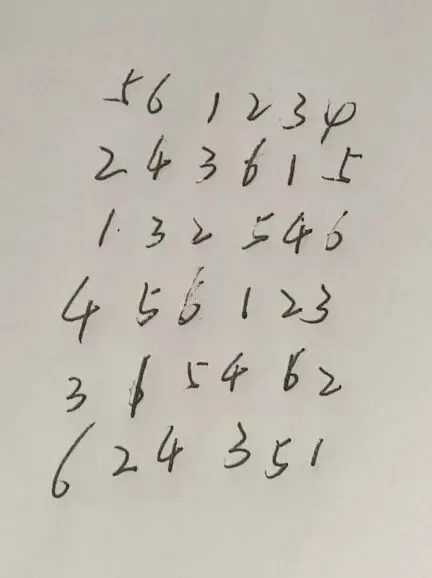 5 6 1 2 3 4
2 4 3 6 1 5
1 3 2 5 4 6
4 5 6 1 2 3
3 1 5 4 6 2
6 2 4 3 5 1